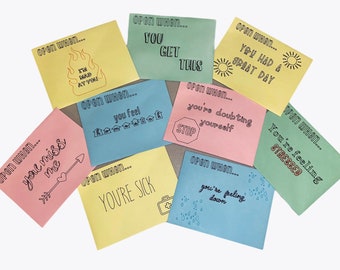 OPEN WHEN...
I'M
MAD
AT YOU
OPEN WHEN...
YOU
GET
THIS
OPEN WHEN...
YOU HAD A
GREAT DAY
OPEN WHEN...
you feel
OPEN WHEN...
you're doubting
yourself
STOP
OPEN WHEN...
you miss
me
OPEN WHEN...
YOU'RE SICK
OPEN WHEN...
you're feeling
down
OPEN WHEN...
You're feeling
STRESSED